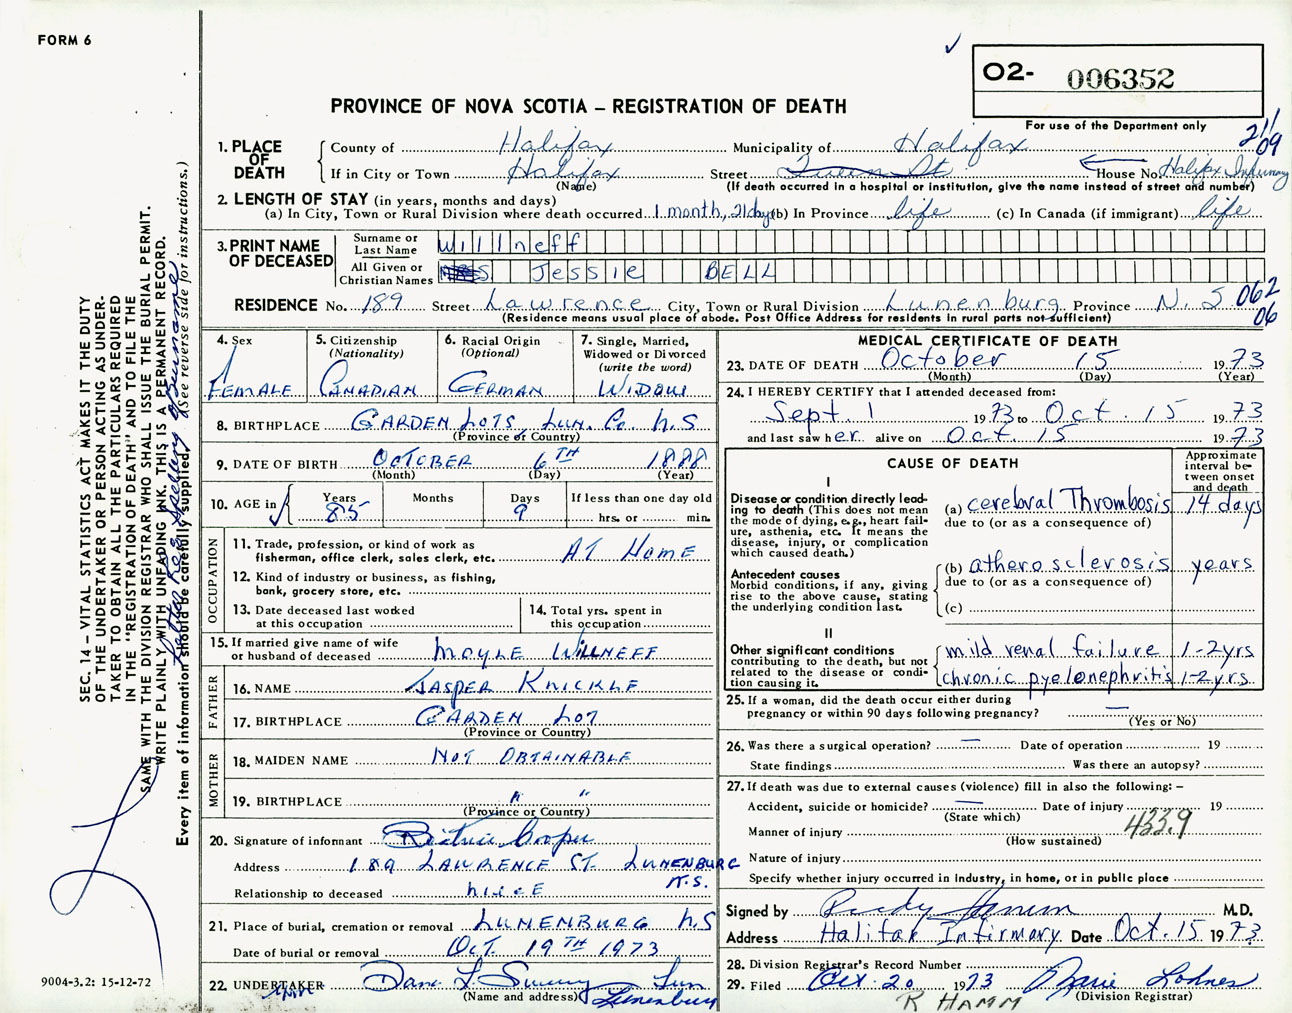 FORM 6
✓
O2- 006352
PROVINCE OF NOVA SCOTIA – REGISTRATION OF DEATH
For use of the Department only
21/09
1. PLACE OF DEATH
County of Halifax Municipality of Halifax
If in City or Town Halifax Street Queen St House No. Halifax Infirmary
(Name) (If death occurred in a hospital or institution, give the name instead of street and number)
2. LENGTH OF STAY (in years, months and days)
(a) In City, Town or Rural Division where death occurred 1 month, 21 days (b) In Province life (c) In Canada (if immigrant) life
3. PRINT NAME OF DECEASED
Surname or Last Name Willneff
All Given or Christian Names MRS Jessie BELL
RESIDENCE No. 189 Street Lawrence City, Town or Rural Division Lunenburg Province N.S 062
(Residence means usual place of abode. Post Office Address for residents in rural parts not sufficient) 06
4. Sex FEMALE
5. Citizenship (Nationality) CANADIAN
6. Racial Origin (Optional) GERMAN
7. Single, Married, Widowed or Divorced (write the word) WIDOW
8. BIRTHPLACE GARDEN LOTS, LUN. Co. N.S
(Province or Country)
9. DATE OF BIRTH OCTOBER 6TH 1888
(Month) (Day) (Year)
10. AGE in Years 85 Months Days 9 If less than one day old hrs. or min.
OCCUPATION
11. Trade, profession, or kind of work as fisherman, office clerk, sales clerk, etc. AT HOME
12. Kind of industry or business, as fishing, bank, grocery store, etc.
13. Date deceased last worked at this occupation
14. Total yrs. spent in this occupation
15. If married give name of wife or husband of deceased MOYLE WILLNEFF
FATHER
16. NAME JASPER KNICKLE
17. BIRTHPLACE GARDEN LOT
(Province or Country)
MOTHER
18. MAIDEN NAME NOT OBTAINABLE
19. BIRTHPLACE " "
(Province or Country)
20. Signature of informant Beatrice Cooper
Address 189 LAWRENCE ST. LUNENBURG N.S.
Relationship to deceased NIECE
21. Place of burial, cremation or removal LUNENBURG N.S
Date of burial or removal OCT. 19TH 1973
22. UNDERTAKER Dana L. Sweeny
(Name and address) Lunenburg
MEDICAL CERTIFICATE OF DEATH
23. DATE OF DEATH October 15 1973
(Month) (Day) (Year)
24. I HEREBY CERTIFY that I attended deceased from:
Sept. 1 1973 to Oct. 15 1973
and last saw her alive on Oct. 15 1973
CAUSE OF DEATH
Approximate interval between onset and death
I
Disease or condition directly leading to death (This does not mean the mode of dying, e.g., heart failure, asthenia, etc. It means the disease, injury, or complication which caused death.)
(a) cerebral Thrombosis 14 days
due to (or as a consequence of)
Antecedent causes
Morbid conditions, if any, giving rise to the above cause, stating the underlying condition last.
(b) atherosclerosis years
due to (or as a consequence of)
(c)
II
Other significant conditions contributing to the death, but not related to the disease or condition causing it.
mild renal failure 1-2 yrs
chronic pyelonephritis 1-2 yrs.
25. If a woman, did the death occur either during pregnancy or within 90 days following pregnancy? —
(Yes or No)
26. Was there a surgical operation? — Date of operation 19
State findings Was there an autopsy?
27. If death was due to external causes (violence) fill in also the following: –
Accident, suicide or homicide? — Date of injury 19
(State which)
Manner of injury 433.9
(How sustained)
Nature of injury
Specify whether injury occurred in industry, in home, or in public place
Signed by M.D.
Address Halifax Infirmary Date Oct. 15 1973
28. Division Registrar's Record Number
29. Filed Oct. 20 1973 Marie Lohnes
(Division Registrar)
R HAMM
SEC. 14 – VITAL STATISTICS ACT MAKES IT THE DUTY
OF THE UNDERTAKER OR PERSON ACTING AS UNDER.
TAKER TO OBTAIN ALL THE PARTICULARS REQUIRED
IN THE "REGISTRATION OF DEATH" AND TO FILE THE
SAME WITH THE DIVISION REGISTRAR WHO SHALL ISSUE THE BURIAL PERMIT.
WRITE PLAINLY WITH UNFADING INK. THIS IS A PERMANENT RECORD.
Every item of information should be carefully supplied. (see reverse side for instructions.)
spelling of surname
9004-3.2: 15-12-72